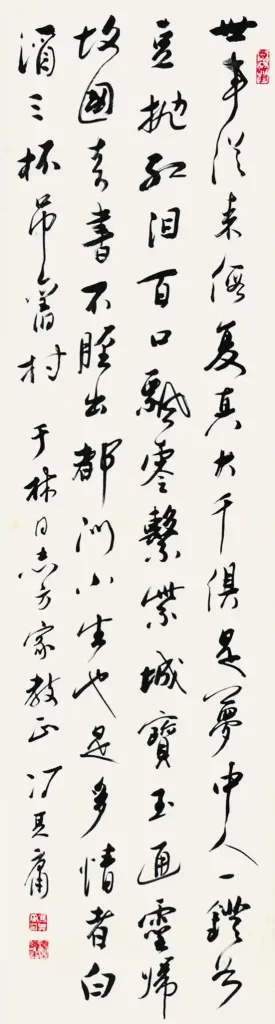 世事從来假复真大千俱是夢中人一鐙如
豆抛紅泪百口飄零繫紫城寶玉通靈歸
故國奇書不脛出都門小生也是多情者白
酒三杯吊舊村 于林同志方家教正 冯其庸